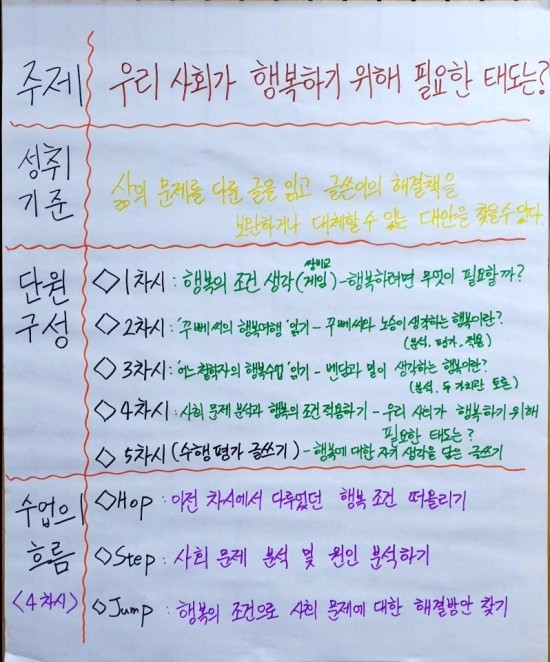 주제 우리 사회가 행복하기 위해 필요한 태도는?
성취 기준
삶의 문제를 다룬 글을 읽고 글쓴이의 해결책을
보완하거나 대체할 수 있는 대안을 찾을 수 있다.
단원 구성
◇1차시 : 행복의 조건 생각(쌍비교 게임) - 행복하려면 무엇이 필요할까?
◇2차시 : '꾸뻬씨의 행복여행' 읽기 - 꾸뻬씨와 노승이 생각하는 행복이란?
(분석. 평가. 적용)
◇3차시 : '어느 철학자의 행복수업' 읽기 - 벤담과 밀이 생각하는 행복이란?
(분석. 두 가치관 토론)
◇4차시 : 사회 문제 분석과 행복의 조건 적용하기 - 우리 사회가 행복하기 위해
필요한 태도는?
◇5차시 (수행평가 글쓰기) - 행복에 대한 자기 생각을 담은 글쓰기
수업의 흐름
<4차시>
◇Hop : 이전 차시에서 다루었던 행복 조건 떠올리기
◇Step : 사회 문제 분석 및 원인 분석하기
◇Jump : 행복의 조건으로 사회 문제에 대한 해결방안 찾기